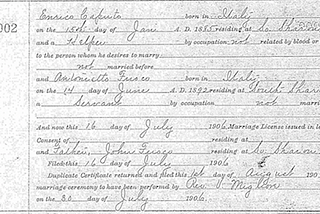 002
Enrico Caputo born in Italy
on the 15th day of Jan A. D. 1885 residing at So. Sharon
and a Helper by occupation not related by blood or
to the person whom he desires to marry
not married before
and Antoniette Fusco born in Italy
on the 14 day of June A. D. 1892 residing at South Shar
a Servant by occupation not mar
And now this 16 day of July 1906 Marriage License issued in
Consent of residing at
and Father, John Fusco residing at So Sharon
Filed this 16 day of July 1906
Duplicate Certificate returned and filed this 1st day of August 190
marriage ceremony to have been performed by Rev
on the 30 day of July 1906.